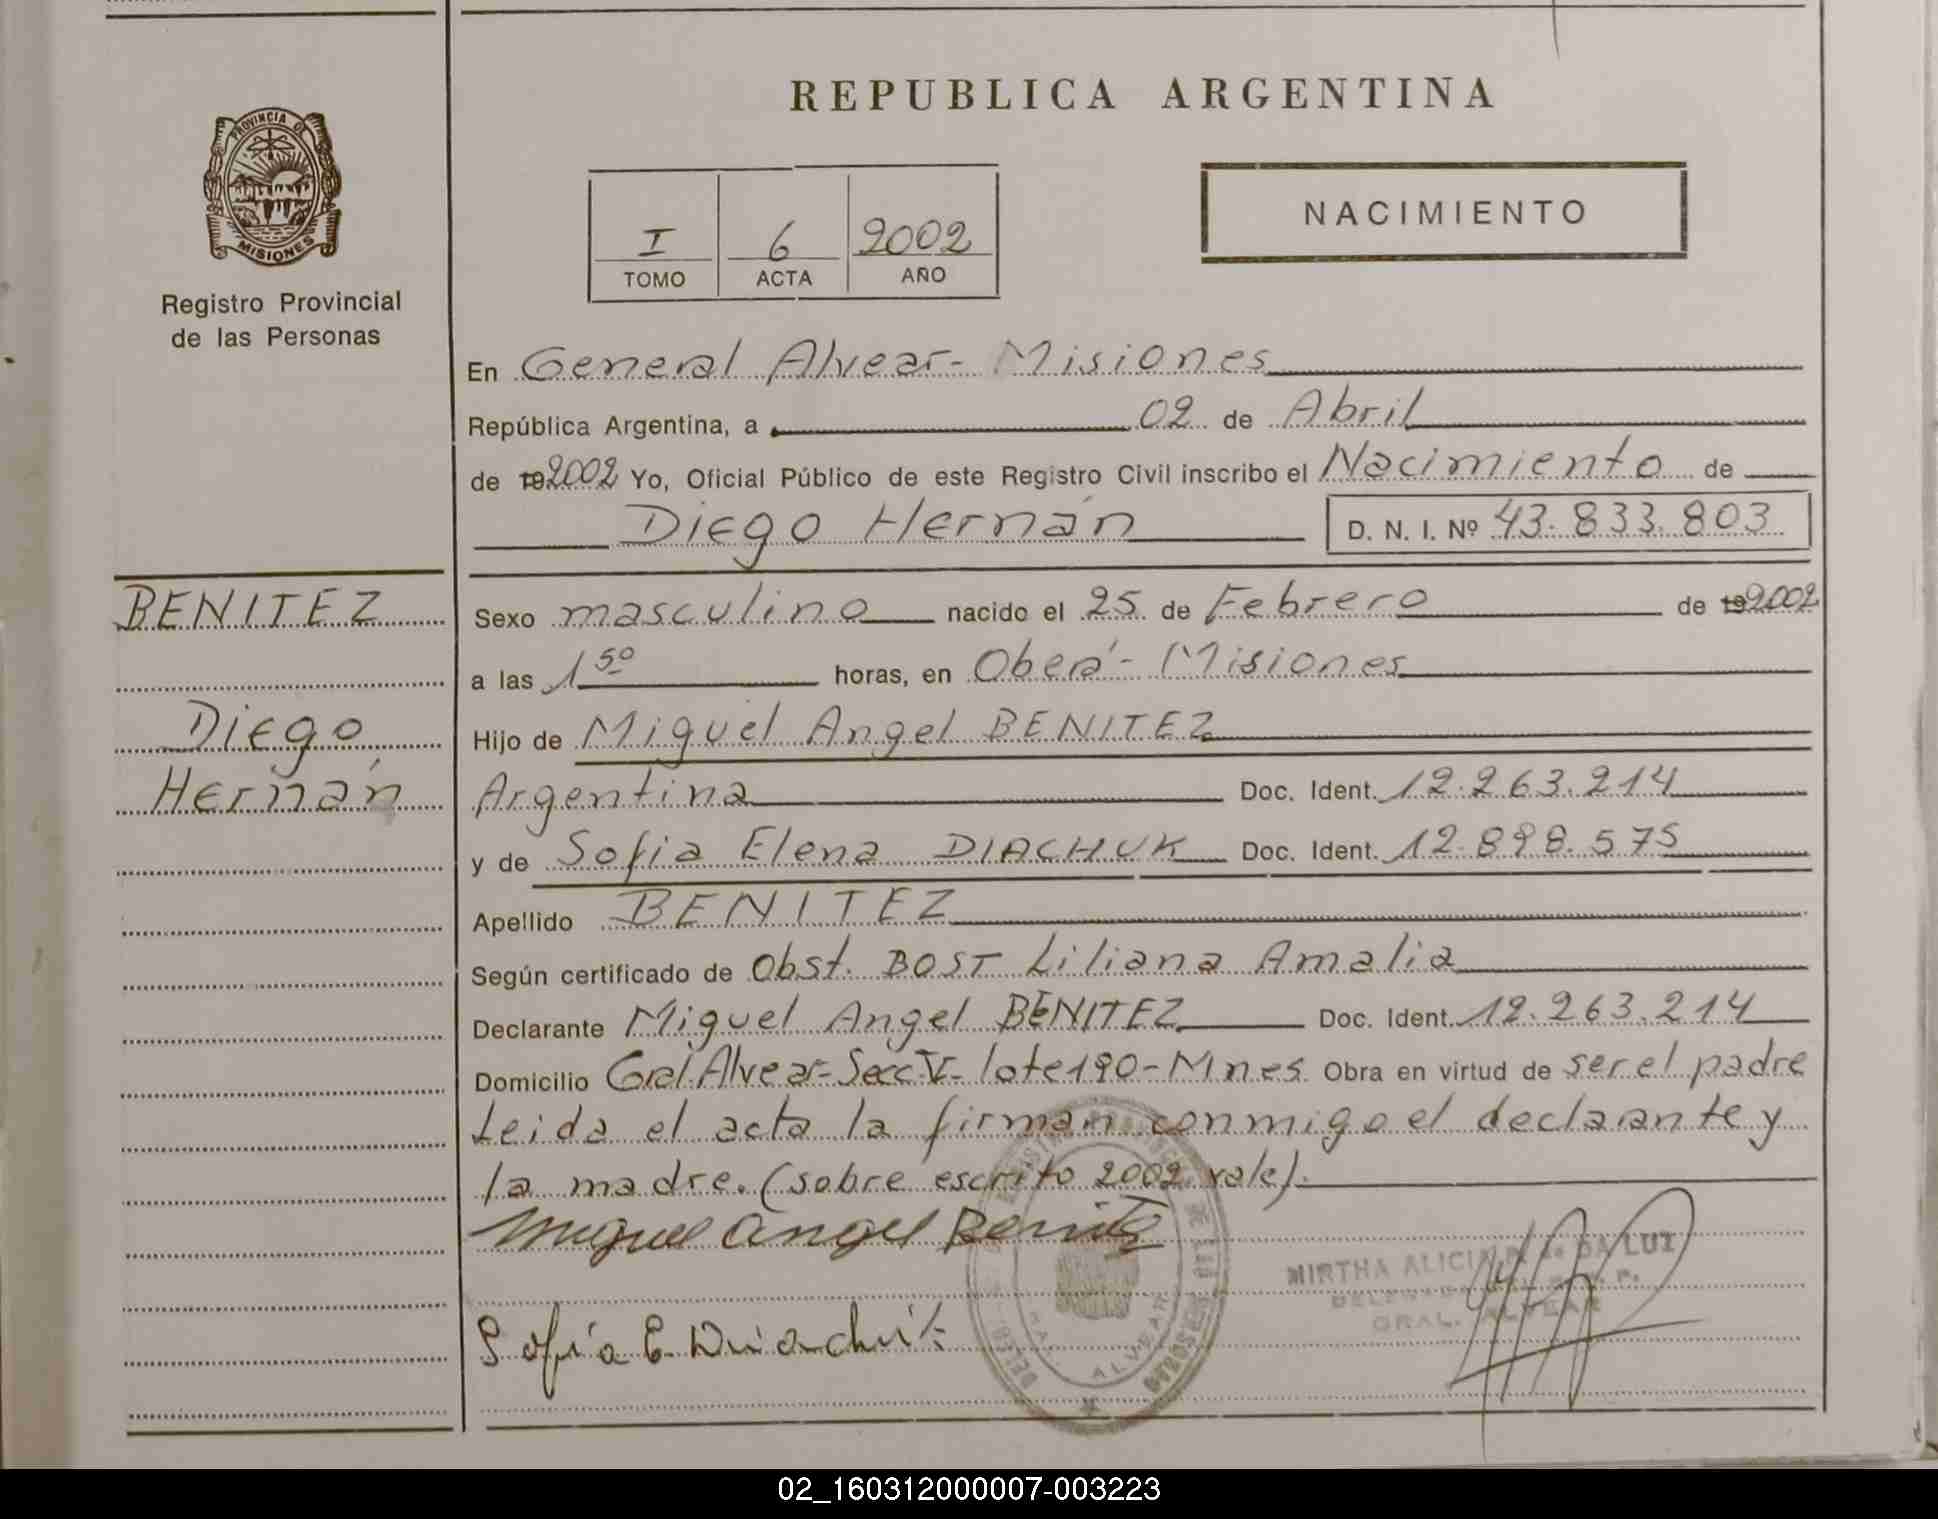 REPUBLICA ARGENTINA
PROVINCIA DE
MISIONES
Registro Provincial
de las Personas
I 6 2002
TOMO ACTA AÑO
NACIMIENTO
En General Alvear- Misiones
República Argentina, a 02 de Abril
de 192002 Yo, Oficial Público de este Registro Civil inscribo el Nacimiento de
Diego Hernán D. N. I. Nº 43.833.803
BENITEZ
Diego
Hernán
Sexo masculino nacido el 25 de Febrero de 192002
a las 1 50 horas, en Oberá- Misiones
Hijo de Miguel Angel BENITEZ
Argentina Doc. Ident. 12.263.214
y de Sofia Elena DIACHUK Doc. Ident. 12.898.575
Apellido BENITEZ
Según certificado de Obst. BOST Liliana Amalia
Declarante Miguel Angel BENITEZ Doc. Ident. 12.263.214
Domicilio Gral. Alvear- Secc V- lote 190- Mnes Obra en virtud de ser el padre
Leida el acta la firman conmigo el declarante y
la madre. (sobre escrito 2002 vale).
Miguel Angel Benitez
MIRTHA ALICIA DA LUZ
GRAL. ALVEAR
Sofía E. Diachuk
ALVEAR
02_160312000007-003223